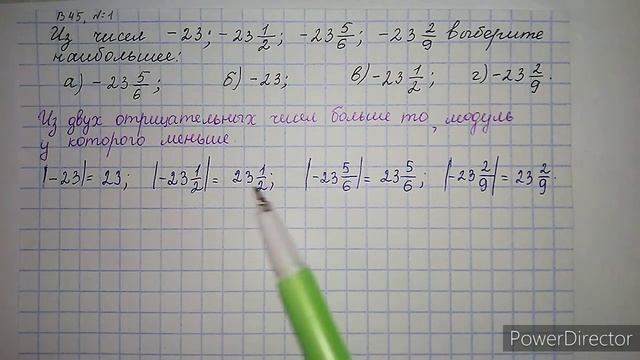 В 45, №1
Из чисел -23; -23 1/2; -23 5/6; -23 2/9 выберите
наибольшее:
а) -23 5/6; б) -23; в) -23 1/2; г) -23 2/9.
Из двух отрицательных чисел больше то, модуль
у которого меньше.
|-23| = 23; |-23 1/2| = 23 1/2; |-23 5/6| = 23 5/6; |-23 2/9| = 23 2/9.
PowerDirector